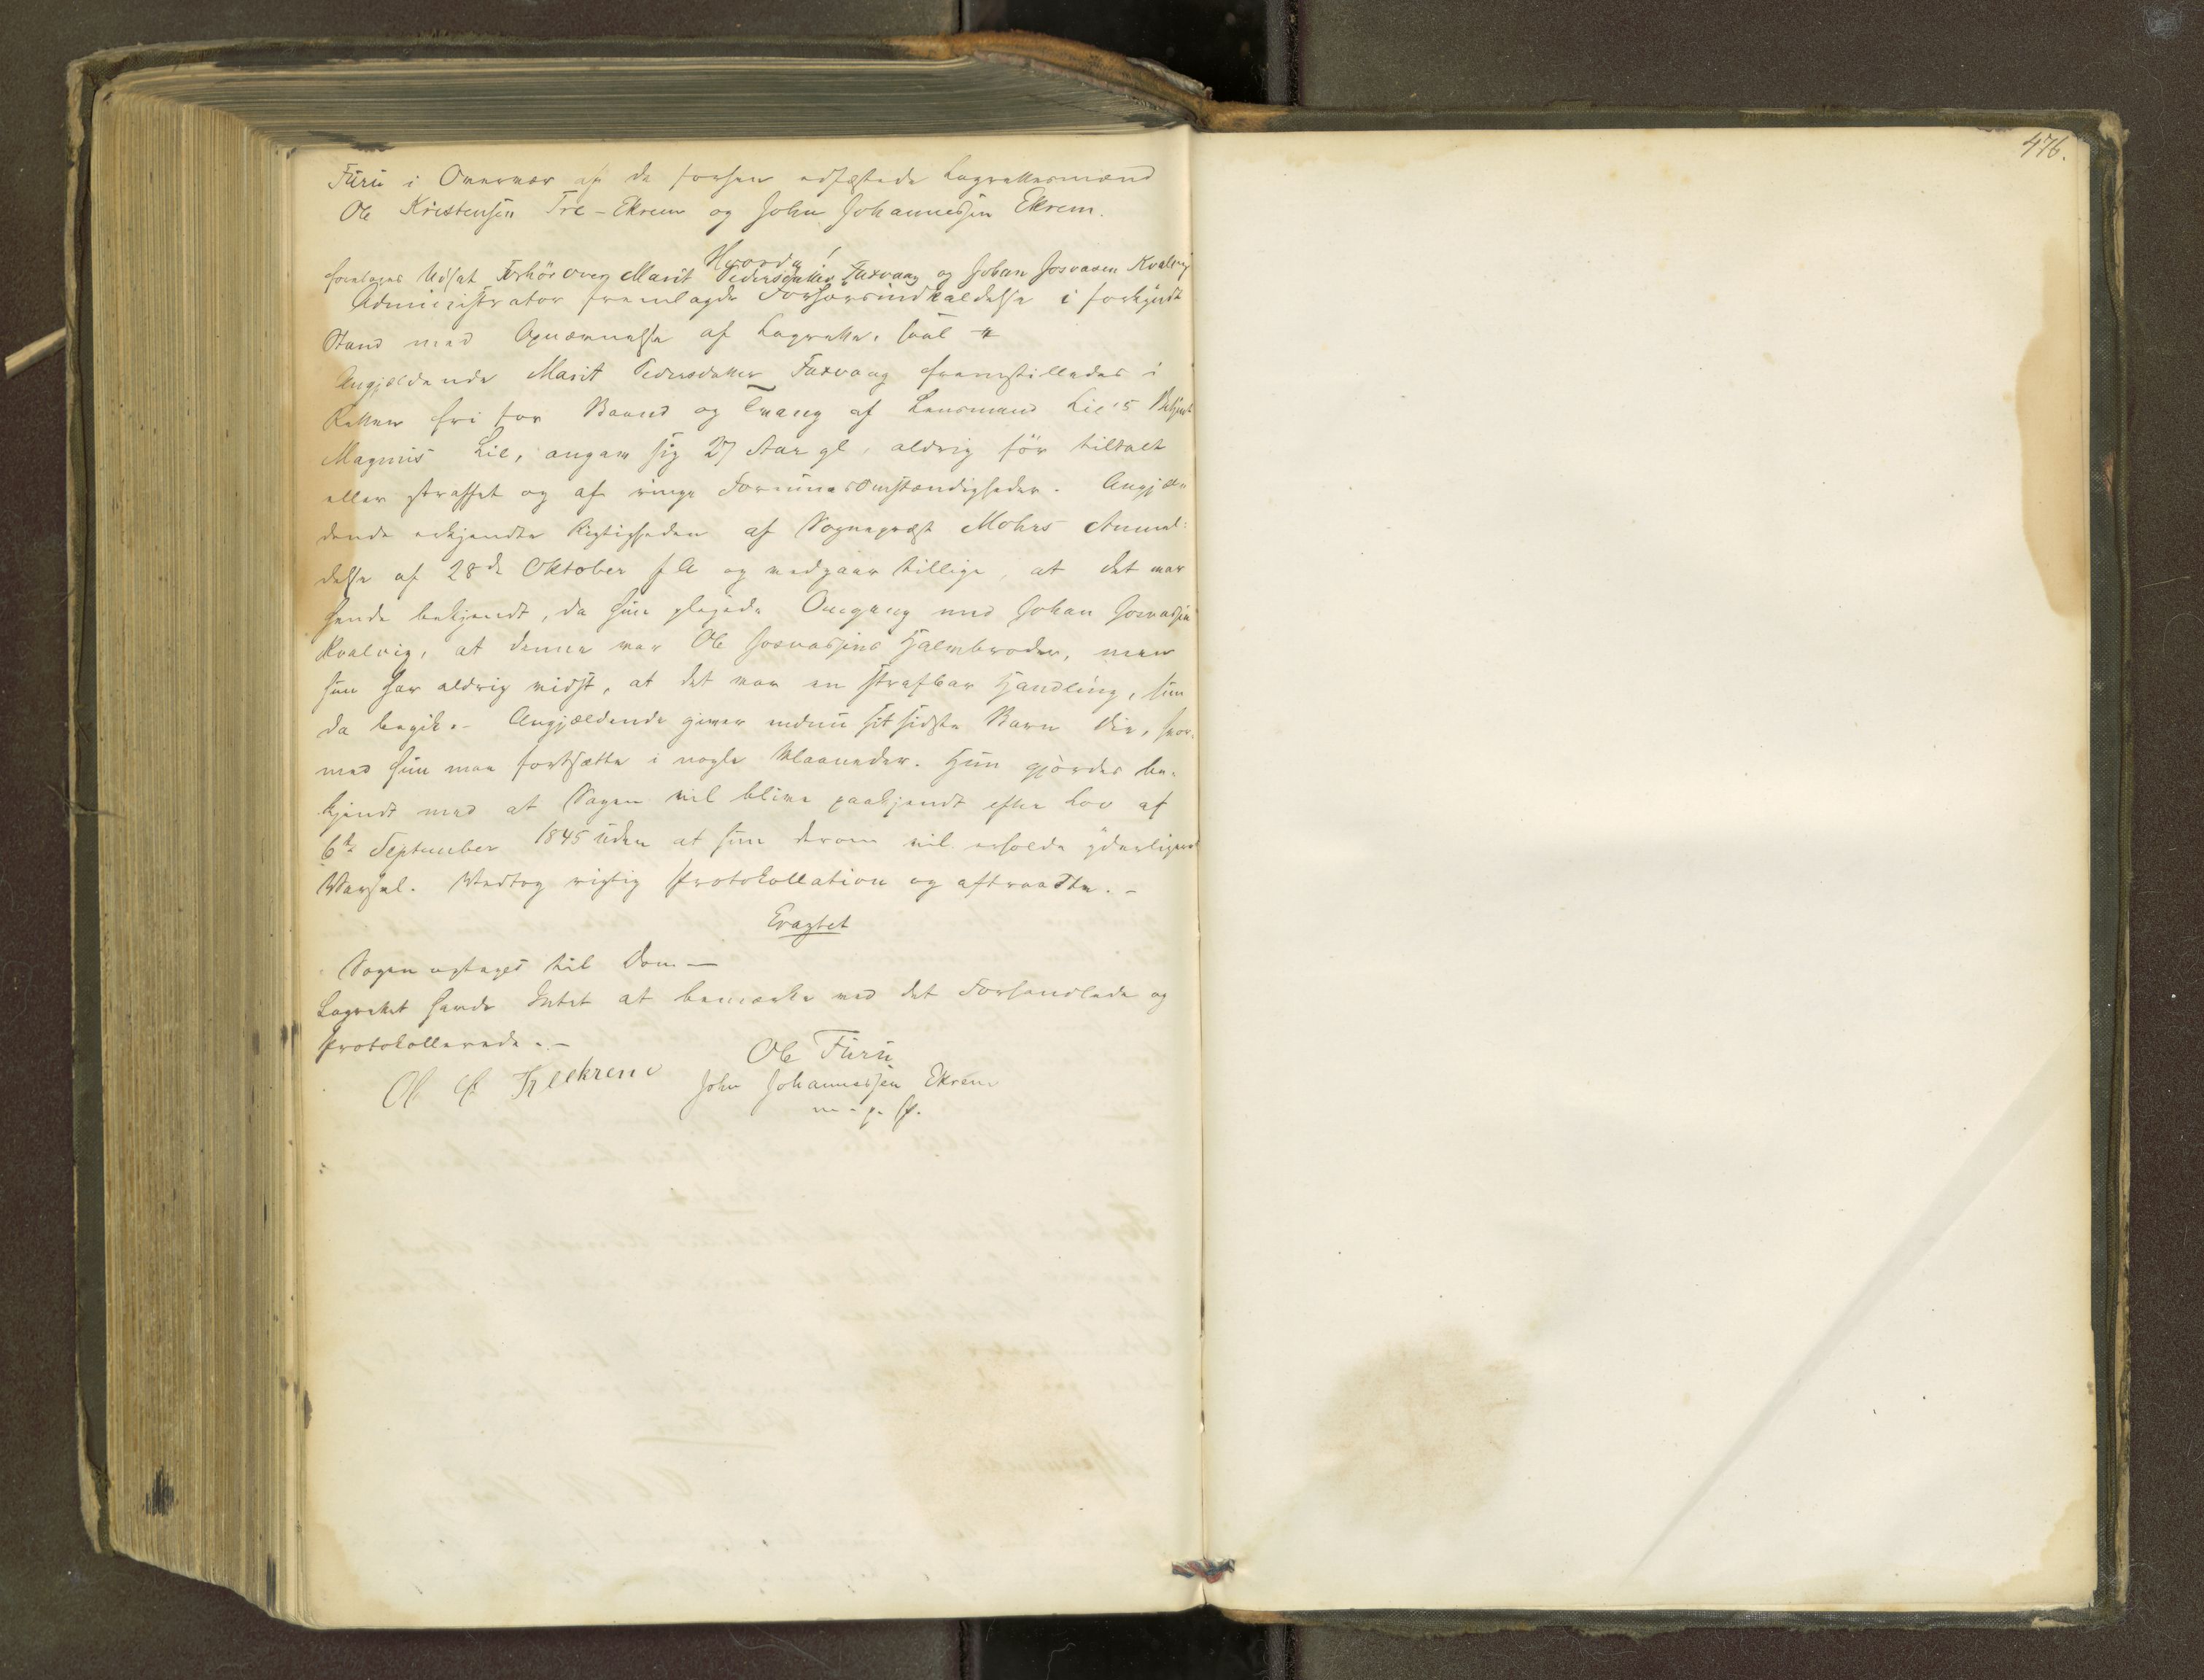 476.
Furu i Overvær af de forhen edfæstede Lagrettesmænd
Ole Kristensen Tre-Ekrem og John Johannessen Ekrem.
Hvorda!
foretages Udsat Forhör over Marit Pedersdatter Faxvaag og Johan Josvasen Kvalvig
Administrator fremlagde Forhörsindkaldelse i forkyndt
Stand med Opnævnelse af Lagrette,
Angjældende Marit Pedersdatter Faxvaag fremstilledes i
Retten fri for Baand og Tvang af Lensmand Lie's
Magnus Lie, angav sig 27 Aar gl, aldrig för tiltalt
eller straffet og af ringe Formuesomstændigheder. Angjæl-
dende erkjendte Rigtigheden af Sogneprest Mohrs Anmel-
delse af 28de Oktober f A og vedgaar tillige, at det var
hende bekjendt, da hun plejede Omgang med Johan Josvasen
Kvalvig, at denne var Ole Josvasens Halvbroder, men
hun har aldrig vidst, at det var en strafbar Handling, hun
da begik. - Angjældende giver endnu sit sidste Barn Die, hvor-
med hun maa fortsætte i nogle Maaneder. Hun gjordes be-
kjendt med at Sagen vil blive paakjendt efter Lov af
6te September 1845 uden at hun derom vil erholde yderligere
Varsel. Vedtog rigtig Protokollation og aftraadte. -
Eragtet
Sagen optages til Dom -
Lagrettet havde Intet at bemærke ved det Forhandlede og
Protokollerede. -
Ole Furu
Ole K Treekrem John Johannessen Ekrem
m. p. P.